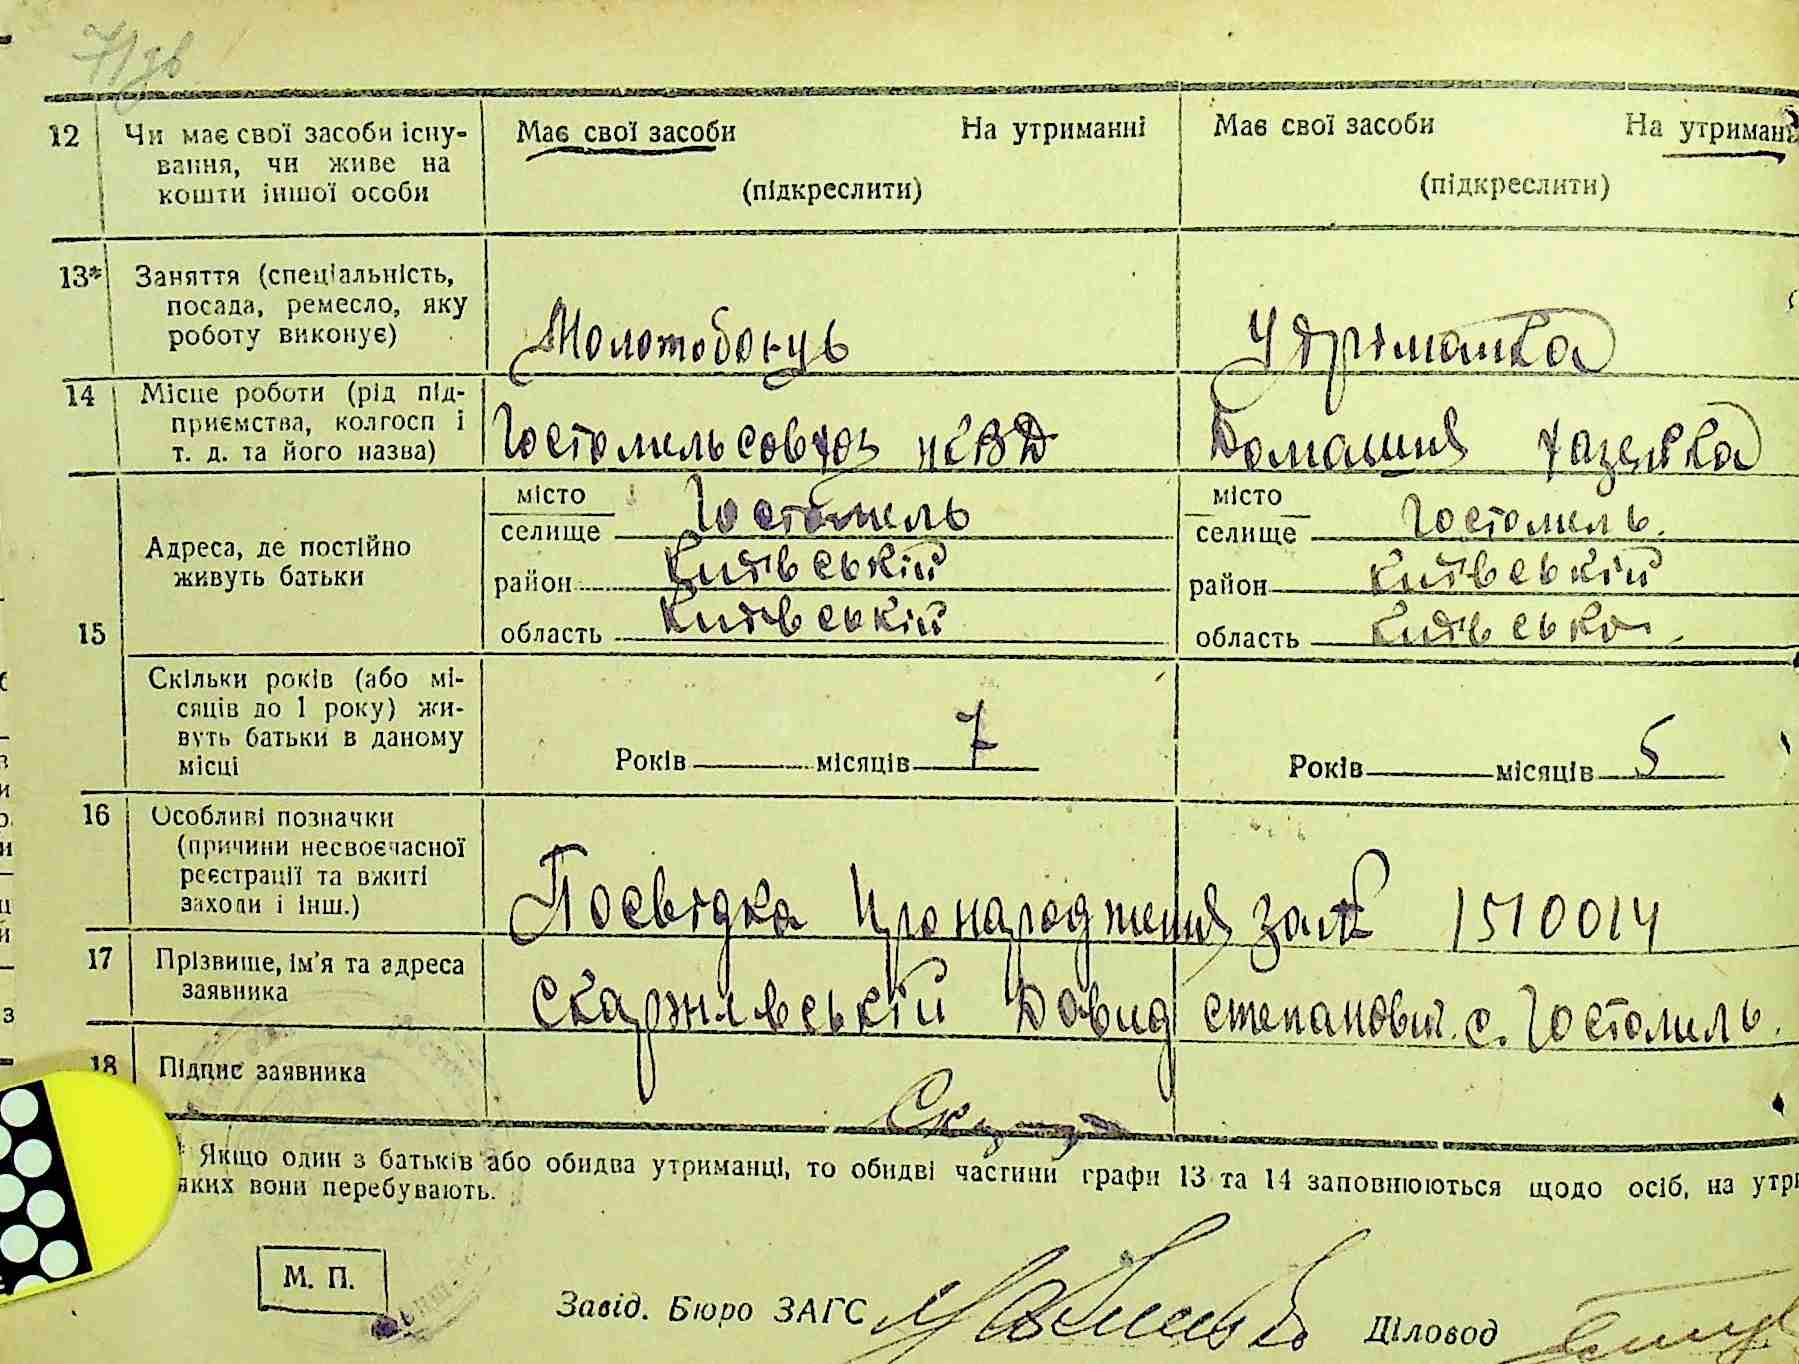 12 Чи має свої засоби існу-
вання, чи живе на
кошти іншої особи
Має свої засоби На утриманні
(підкреслити)
Має свої засоби На утриман
(підкреслити)
13* Заняття (спеціальність,
посада, ремесло, яку
роботу виконує)
Молотобоець
Утріманка
14 Місце роботи (рід під-
приємства, колгосп і
т. д. та його назва)
Гостомель совхоз НКВД
Домашня
15 Адреса, де постійно
живуть батьки
місто
селище Гостомель
район Київській
область Київській
місто
селище Гостомель.
район Київській
область Київська
Скільки років (або мі-
сяців до 1 року) жи-
вуть батьки в даному
місці
Років місяців 7
Років місяців 5
16 Особливі позначки
(причини несвоєчасної
реєстрації та вжиті
заходи і інш.)
Посвідка про народження за № 1510014
17 Прізвище, ім'я та адреса
заявника
Скаржлвській Довид степанович. с. Гостомель.
18 Підпис заявника
* Якщо один з батьків або обидва утриманці, то обидві частини графи 13 та 14 заповнюються щодо осіб, на утри
яких вони перебувають.
М. П.
Завід. Бюро ЗАГС
Діловод